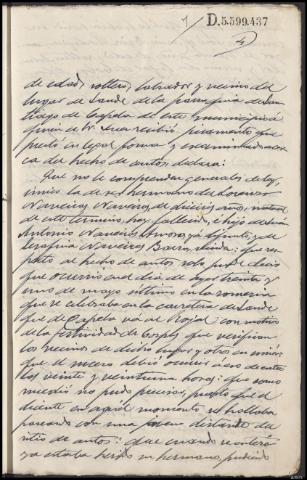 D.5.599.437
de edad, soltero, labrador y vecino del
lugar de Sande de la parroquia de San-
tiago de Capela de este municipio a
quien el Sr. Juez recibió juramento que
prestó en legal forma y examinado acer-
ca del hecho de autos declara:
Que no le comprenden generales de ley,
mas la de ser hermano de
Naveira Naveira, de dieciseis años, natural
de este término, hoy fallecido, é hijo de
Antonio Naveira ya difunto, y de
Serafina Naveira viuda: que res-
pecto al hecho de autos solo puede decir
que ocurrió en el dia de ayer treinta y
uno de mayo último en la romeria
que se celebraba en la carretera de Sande
que de Capela vá al Royal con motivo
de la festividad de Corpus que verifican
los vecinos de dicho lugar y otros en unión
que el mero debió ocurrir a eso de entre
las veinte y veintiuna horas: que como
sucedió no puede precisar, puesto que el
dicente en aquel momento se hallaba
paseando con una joven distante del
sitio de autos: Que cuando se enteró
ya estaba herido su hermano, pudiendo